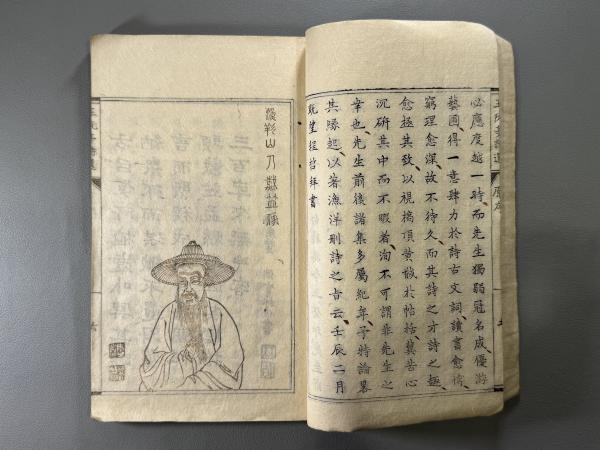 必應度越一時而先生獨弱冠名成優游
藝圃得一意肆力於詩古文詞讀書愈博
窮理愈深故不待久而其詩之才詩之趣
愈極其致以視槁項黃馘於帖括苦心
沉研其中而不暇若洵不可謂非先生之
幸也先生前後譜集多屬紀年予特論畧
其緣起以著漁洋刪詩之旨云壬辰二月
既望程哲拜書
漁洋山人戴笠像